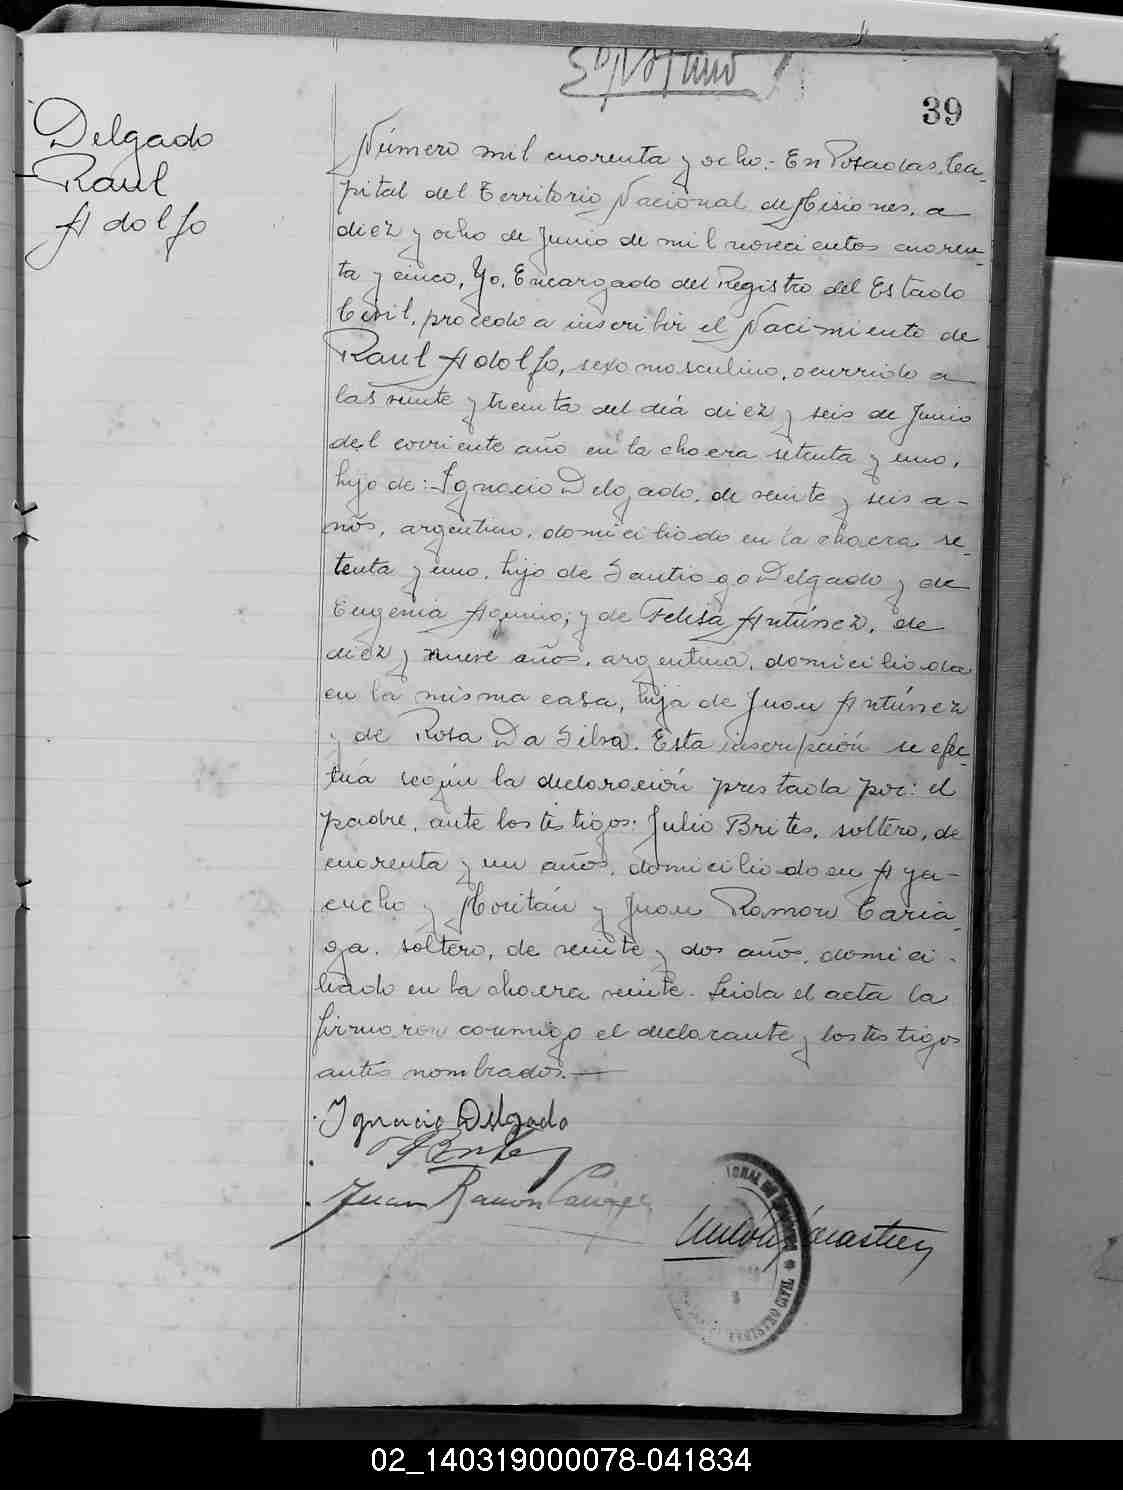 39
Delgado
Raul
Adolfo
Número mil cuarenta y ocho.- En Posadas, Ca-
pital del Territorio Nacional de Misiones, a
diez y ocho de Junio de mil novecientos cuaren-
ta y cinco, Yo, Encargado del Registro del Estado
Civil, procedo a inscribir el Nacimiento de
Raul Adolfo, sexo masculino, ocurrido a
las veinte y treinta del día diez y seis de Junio
del corriente año en la chacra setenta y uno,
hijo de: Ignacio Delgado, de veinte y seis a-
ños, argentino, domiciliado en la chacra se-
tenta y uno, hijo de Santiago Delgado y de
Eugenia Aquino; y de Felisa Antúnez, de
diez y nueve años, argentina, domiciliada
en la misma casa, hija de Juan Antúnez
y de Rosa Da Silva. Esta inscripción se efec-
túa según la declaración prestada por: el
padre, ante los testigos: Julio Brites, soltero, de
cuarenta y un años, domiciliado en Aya-
cucho y Moritán y Juan Ramon Caria-
ga, soltero, de veinte y dos años, domici-
liado en la chacra veinte. Leida el acta la
firmaron conmigo el declarante y los testigos
antes nombrados.—
Ignacio Delgado
Juan Ramon
REGISTRO CIVIL
02_140319000078-041834